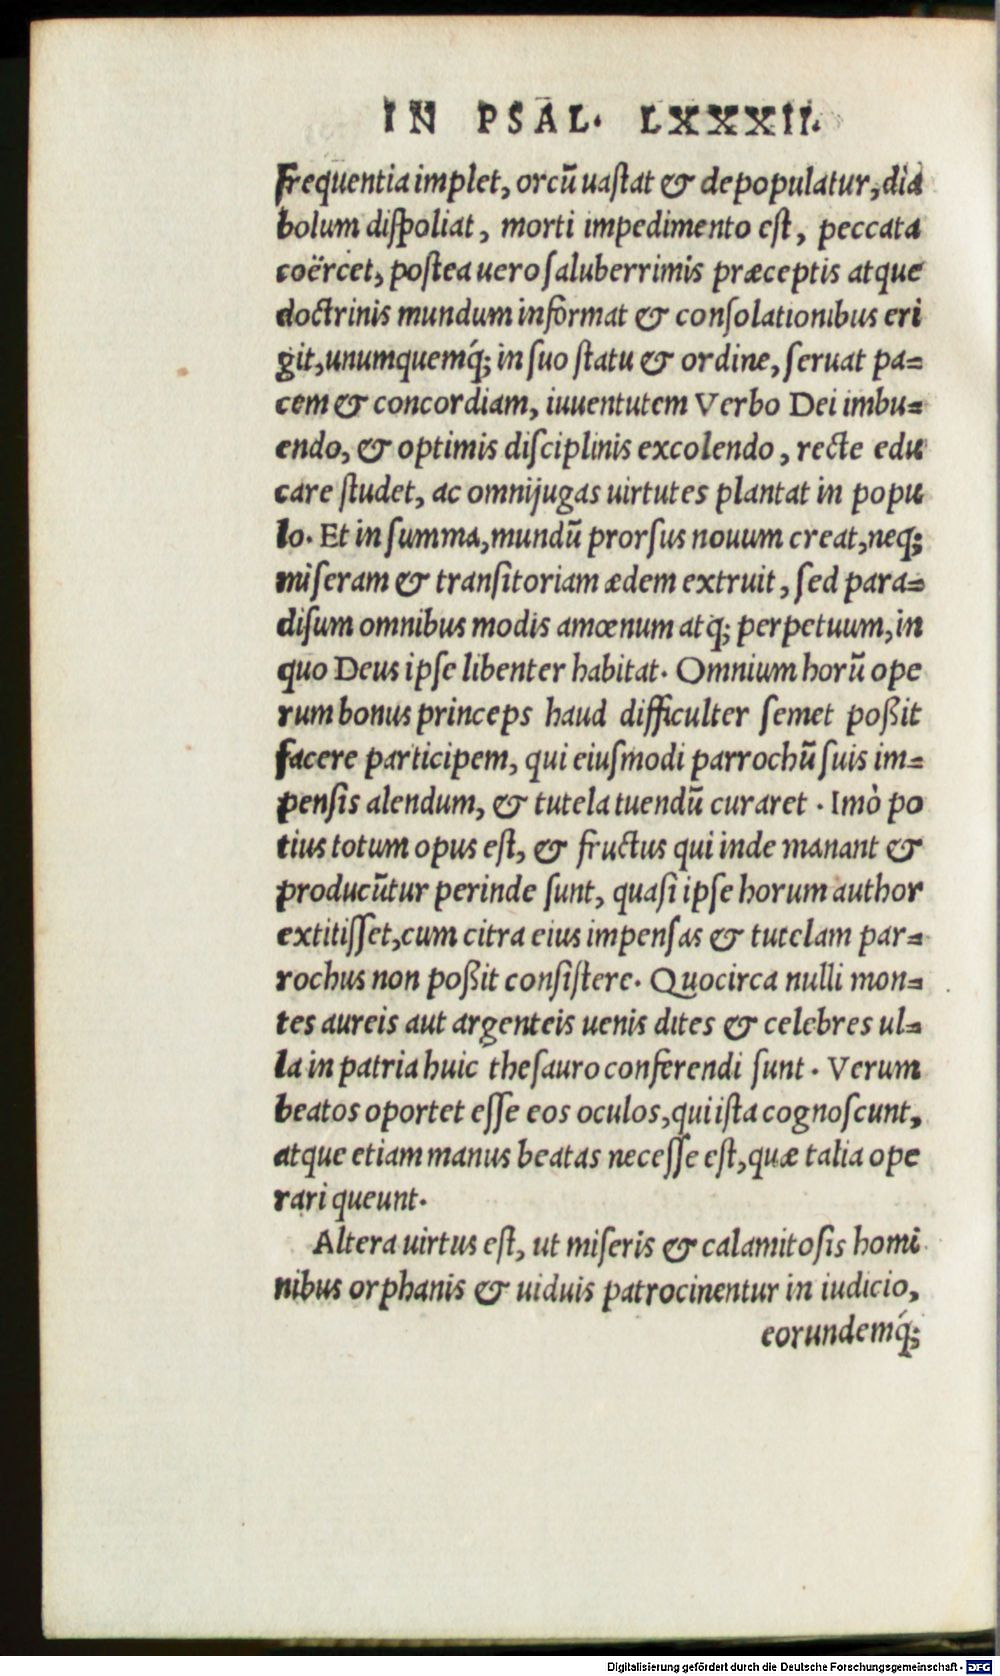 IN PSAL. LXXXII.
Frequentia implet, orcũ uaſtat & depopulatur, dia
bolum diſpoliat, morti impedimento eſt, peccata
coërcet, poſtea uero ſaluberrimis præceptis atque
doctrinis mundum informat & conſolationibus eri
git, unumquemq́; in ſuo ſtatu & ordine, ſeruat pa=
cem & concordiam, iuuentutem Verbo Dei imbu=
endo, & optimis diſciplinis excolendo, recte edu
care ſtudet, ac omnijugas uirtutes plantat in popu
lo. Et in ſumma, mundũ prorſus nouum creat, neq;
miſeram & tranſitoriam ædem extruit, ſed para=
diſum omnibus modis amœnum atq; perpetuum, in
quo Deus ipſe libenter habitat. Omnium horũ ope
rum bonus princeps haud difficulter ſemet poßit
facere participem, qui eiuſmodi parrochũ ſuis im=
penſis alendum, & tutela tuendũ curaret. Imò po
tius totum opus eſt, & fructus qui inde manant &
producũtur perinde ſunt, quaſi ipſe horum author
extitiſſet, cum citra eius impenſas & tutelam par=
rochus non poßit conſiſtere. Quocirca nulli mon=
tes aureis aut argenteis uenis dites & celebres ul=
la in patria huic theſauro conferendi ſunt. Verum
beatos oportet eſſe eos oculos, qui iſta cognoſcunt,
atque etiam manus beatas neceſſe eſt, quæ talia ope
rari queunt.
Altera uirtus eſt, ut miſeris & calamitoſis homi
nibus orphanis & uiduis patrocinentur in iudicio,
eorundemq́;
Digitalisierung gefördert durch die Deutsche Forschungsgemeinschaft - DFG